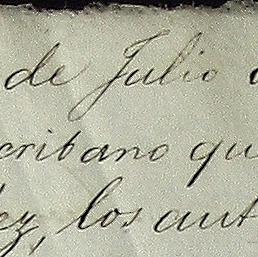 de Julio
cribano qu
ez, los aut